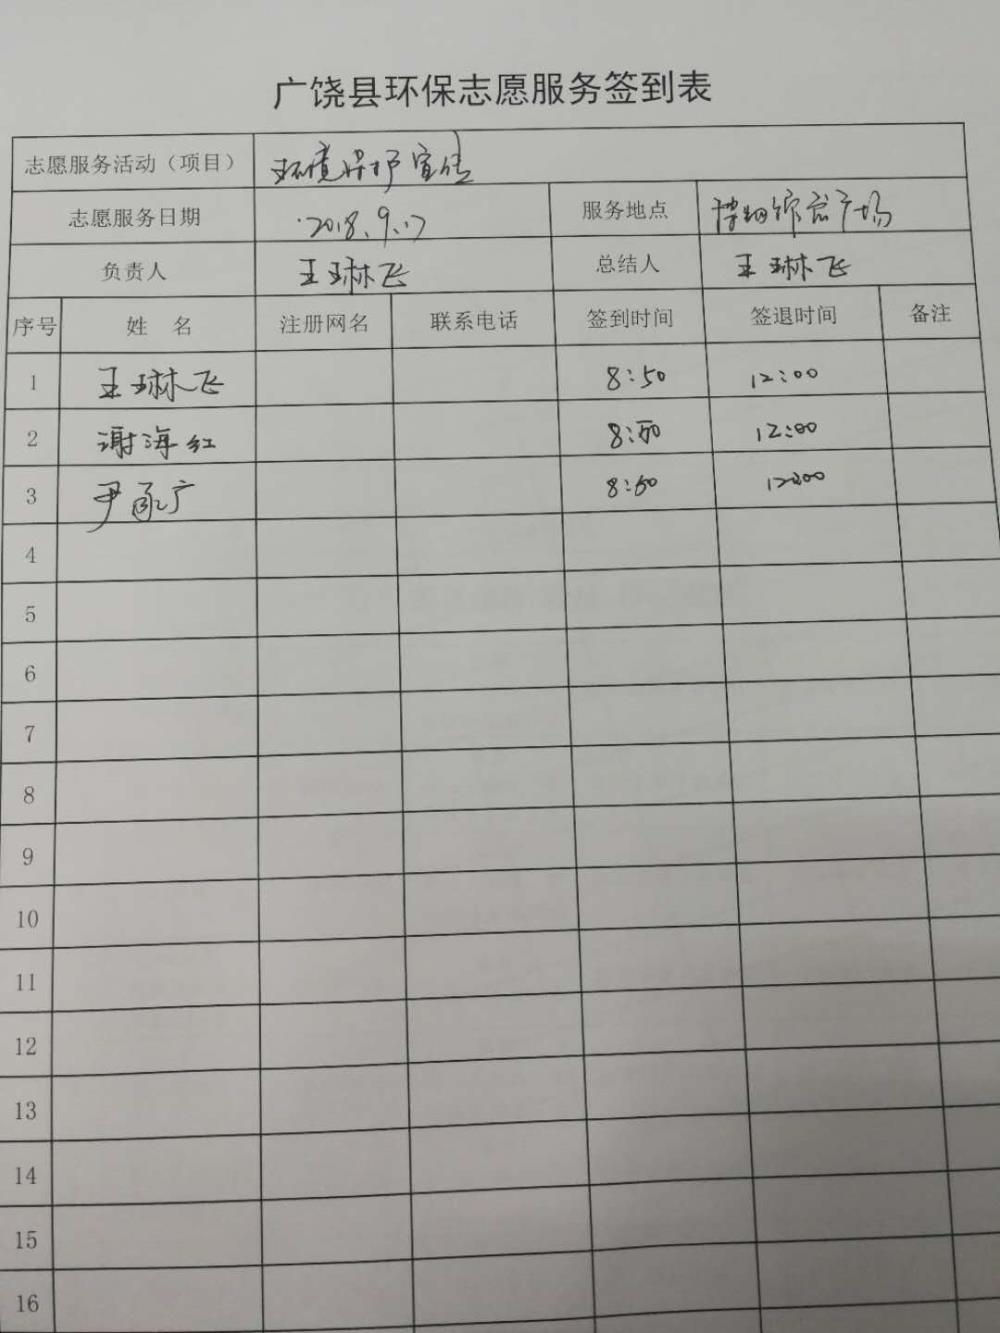 广饶县环保志愿服务签到表
志愿服务活动（项目） 环境保护宣传
志愿服务日期 2018.9.17 服务地点 博物馆前广场
负责人 王琳飞 总结人 王琳飞
序号 姓 名 注册网名 联系电话 签到时间 签退时间 备注
1 王琳飞 8:50 12:00
2 谢海红 8:50 12:00
3 尹 广 8:50 12:00
4
5
6
7
8
9
10
11
12
13
14
15
16